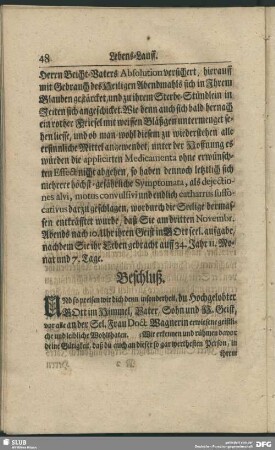 48 Lebens-Lauff.
Herrn Beicht-Vaters Absolution versichert, hierauff
mit Gebrauch des Heiligen Abendmahls sich in Ihrem
Glauben gestärcket, und zu ihrem Sterbe-Stündlein in
Zeiten sich angeschicket. Wie denn auch sich bald hernach
ein rother Friesel mit weissen Bläßgen untermenget se-
hen liesse, und ob man wohl diesem zu wiederstehen alle
ersinnliche Mittel angewendet, unter der Hoffnung es
würden die applicirten Medicamenta ohne erwünsch-
ten Effect nicht abgehen, so haben dennoch letztlich sich
mehrere höchst-gefährliche Symptomata, als dejectio-
nes alvi, motus convulsivi und endlich catharrus suffo-
cativus darzu geschlagen, wodurch die Seelige dermas-
sen entkräfftet wurde, daß Sie am dritten Novembr.
Abends nach 10. Uhr ihren Geist in GOtt seel. ausgabe,
nachdem Sie ihr Leben gebracht auff 34. Jahr 11. Mo-
nat und 7. Tage.
Beschluß.
UNd so preisen wir dich denn insonderheit, du Hochgelobter
GOtt im Himmel, Vater, Sohn und H. Geist,
vor alle an der Sel. Frau Doct. Wagnerin erwiesene geistli-
che und leibliche Wohlthaten. Wir erkennen und rühmen davor
deine Gütigkeit, daß du auch an dieser so gar werthesten Person, in
ihrem
SLUB